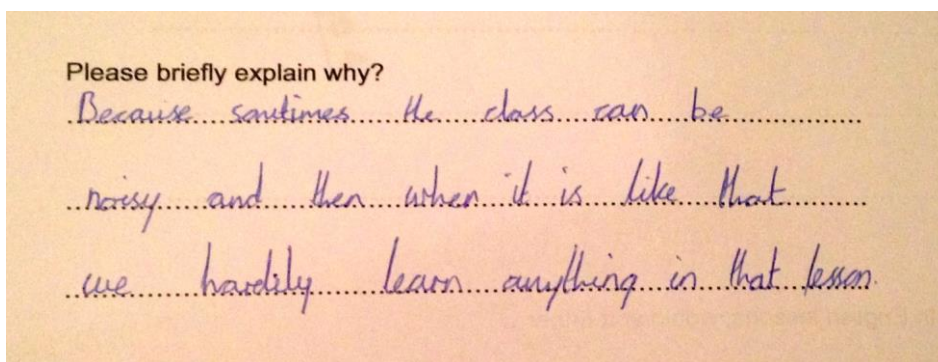 Please briefly explain why?
Because somtimes the class can be
noisy and then when it is like that
we hardily learn anything in that lesson.